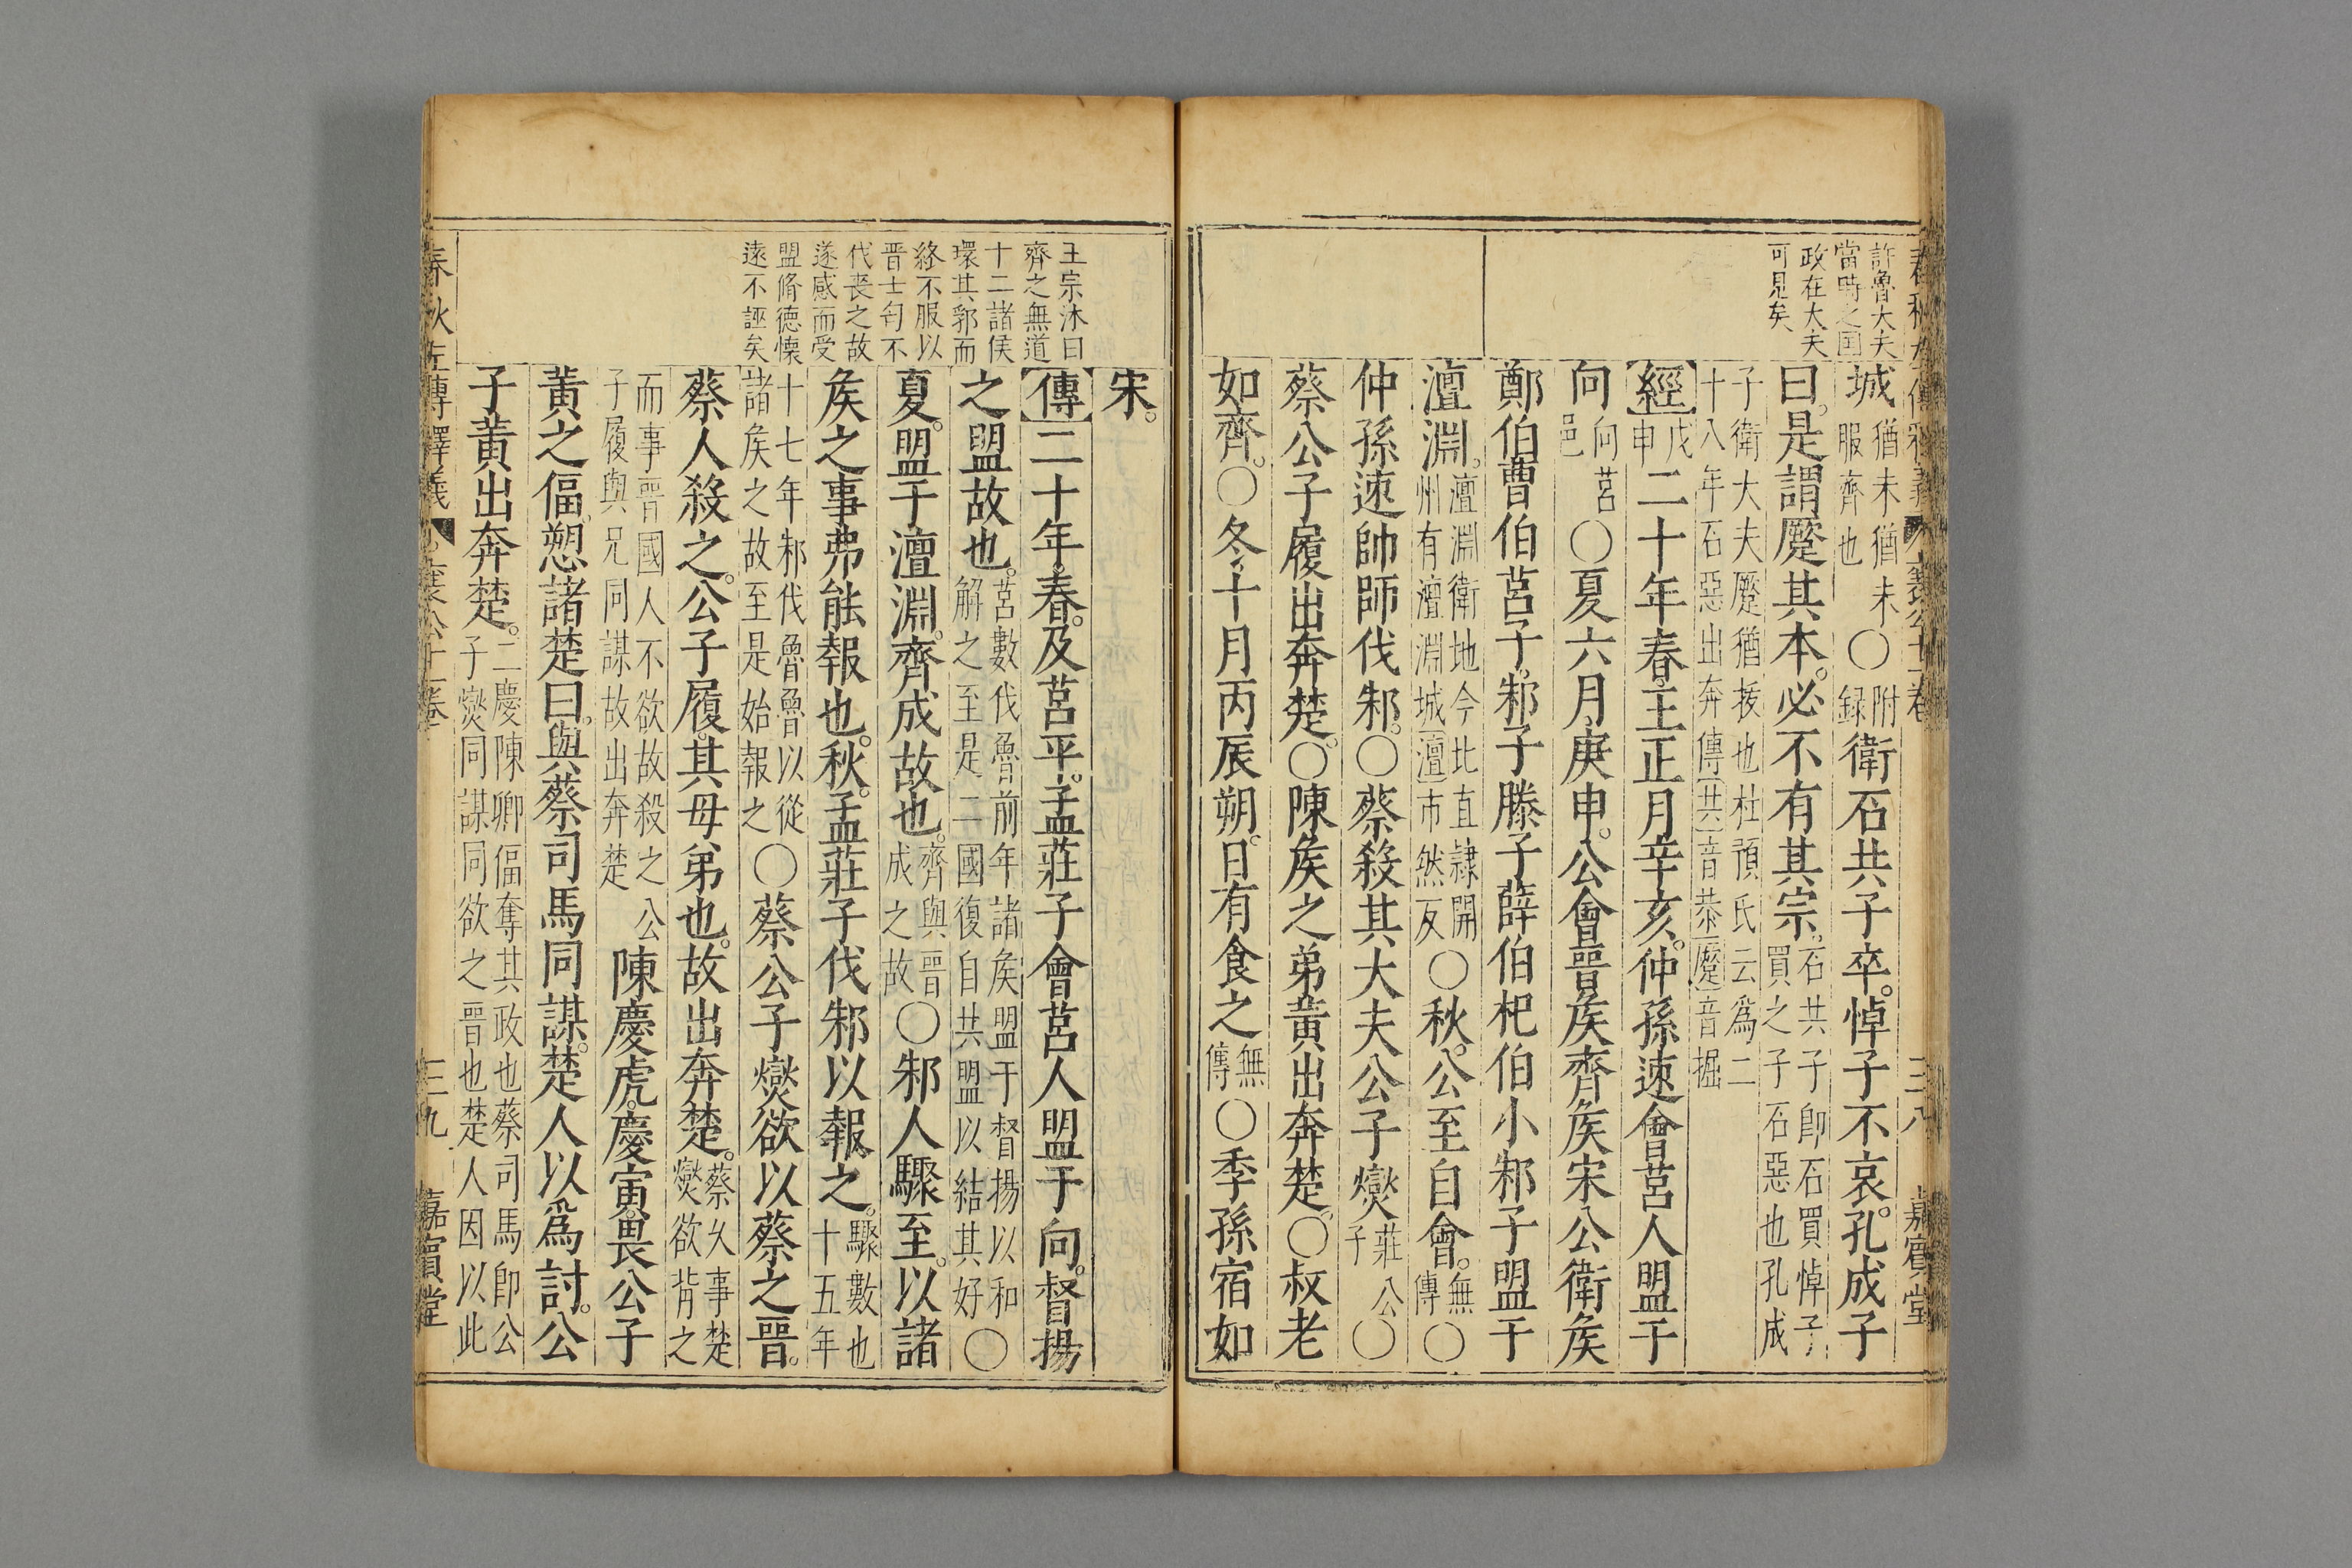 許魯大夫
當時之国
政在大夫
可見矣
城猶未猶未服齊也〇附録衛石共子卒悼子不哀孔成子
曰是謂蹷其本必不有其宗石共子卽石買悼子買之子石惡也孔成
子衛大夫蹷猶拔也杜預氏云爲二十八年石惡出奔傳共音恭蹷音掘
經戊申二十年春王正月辛亥仲孫速會莒人盟于
向向莒邑〇夏六月庚申公會晉矦齊矦宋公衛矦
鄭伯曹伯莒子邾子滕子薛伯杞伯小邾子盟于
澶淵澶淵衛地今北直隷開州有澶淵城澶市然反〇秋公至自會無傳〇
仲孫速帥師伐邾〇蔡殺其大夫公子燮莊公子〇
蔡公子履出奔楚〇陳矦之弟黃出奔楚〇叔老
如齊〇冬十月丙辰朔日有食之無傳〇季孫宿如
三八 嘉賓堂
王宗沐曰
齊之無道
十二諸侯
環其郛而
終不服以
晉士匄不
伐喪之故
遂感而受
盟脩德懐
遠不誣矣
宋
傳二十年春及莒平孟莊子會莒人盟于向督揚
之盟故也莒數伐魯前年諸矦盟于督揚以和解之至是二國復自共盟以結其好〇
夏盟于澶淵齊成故也齊與晉成之故〇邾人驟至以諸
矦之事弗能報也秋孟莊子伐邾以報之驟數也十五年
十七年邾伐魯魯以從諸矦之故至是始報之〇蔡公子燮欲以蔡之晉
蔡人殺之公子履其母弟也故出奔楚蔡久事楚燮欲背之
而事晉國人不欲故殺之公子履與兄同謀故出奔楚陳慶虎慶寅畏公子
黃之偪愬諸楚曰與蔡司馬同謀楚人以爲討公
子黃出奔楚二慶陳卿偪奪其政也蔡司馬卽公子燮同謀同欲之晉也楚人因以此
春秋左傳釋義 襄公十一卷 三九 嘉賓堂